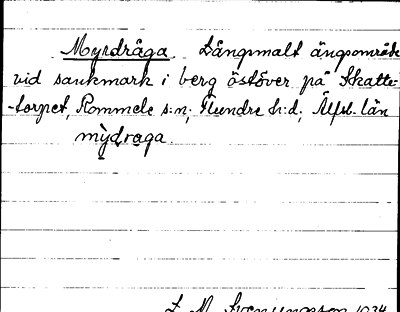 Myrdråga. Långsmalt ängsområde
vid sankmark i berg östöver på Skatte-
-torpet, Rommele s:n; Flundre h:d; Älfsb. län
mỳdraga.
Svenungsson 1934